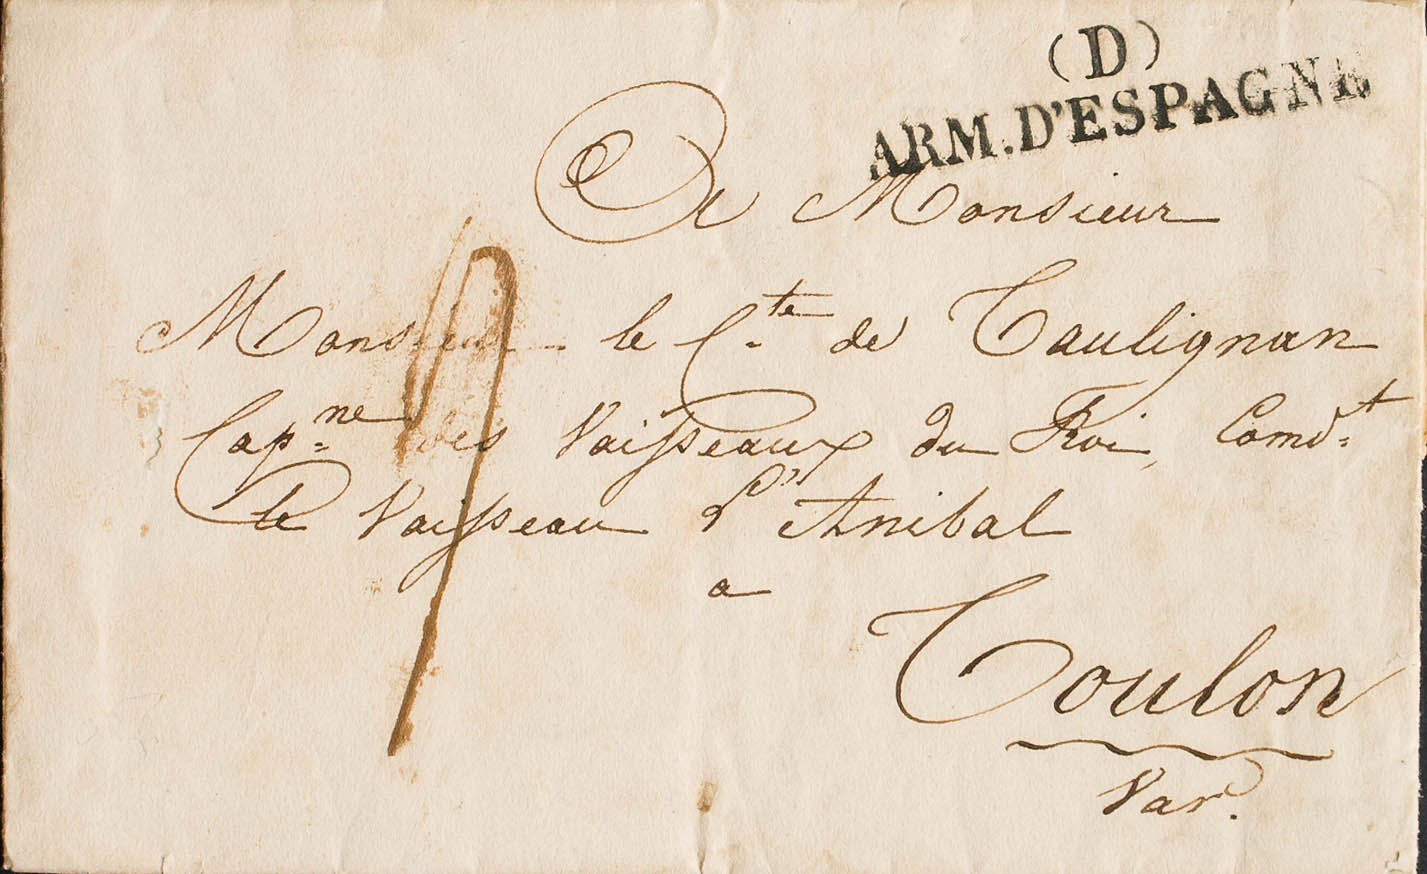 (D)
ARM. D'ESPAGNE
De Monsieur
Monsieur le C.te de Taulignan
Cap.ne des Vaisseaux du Roi, Comd.t
le Vaisseau l'Anibal
a
Toulon
Var.